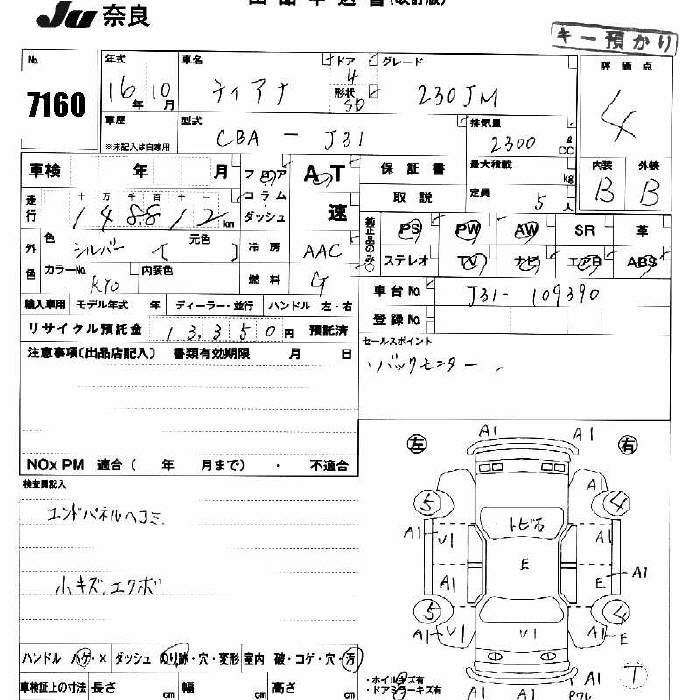 出品申込書(改訂版)
Ju 奈良
キー預かり
No. 7160
年式 16年 10月
車名 ティアナ
ドア 4
形状 SD
グレード 230JM
評価点 4
車歴 ※未記入は自家用
型式 CBA - J31
排気量 2300 ℓ CC
車検 年 月
フロア コラム ダッシュ
AT 速
保証書
取説
最大積載 kg
定員 5人
内装 B 外装 B
走行 十万千百十 148812 km
外色 色 シルバー 〔元色〕
カラーNo. KY0 内装色
冷房 AAC
燃料 G
純正品のみ○
PS PW AW SR 革
ステレオ TV ナビ エアB ABS
輸入車用 モデル年式 年 ディーラー・並行 ハンドル 左・右
車台No. J31- 109390
登録No.
リサイクル預託金 13,350円 預託済
注意事項(出品店記入) 書類有効期限 月 日
セールスポイント
バックモニター
NOx PM 適合( 年 月まで)・ 不適合
検査員記入
エンドパネルヘコミ
小キズ、エクボ
左 A1 A1 右
A1 A
5 4
A1 V1 トビ石 A1
E
A1 A1 E A1
5 4
A1 V1 V1 A1 E
A1 A1
T
ハンドル ハゲ・× ダッシュ のり跡・穴・変形 室内 破・コゲ・穴・汚
・ホイルキズ有
・ドアミラーキズ有
車検証上の寸法 長さ cm 幅 cm 高さ cm